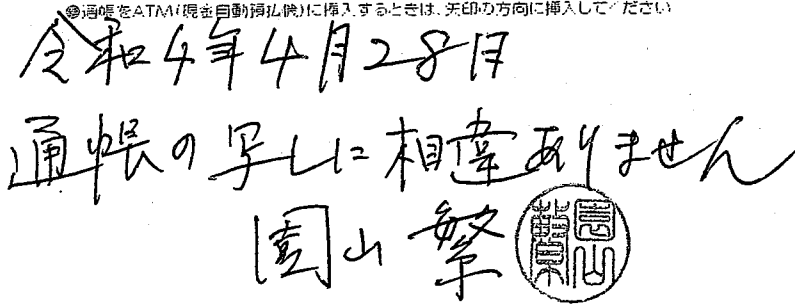 ●通帳をATM(現金自動預払機)に挿入するときは、矢印の方向に挿入してください
令和4年4月28日
通帳の写しに相違ありません
園山 繁
園山繁